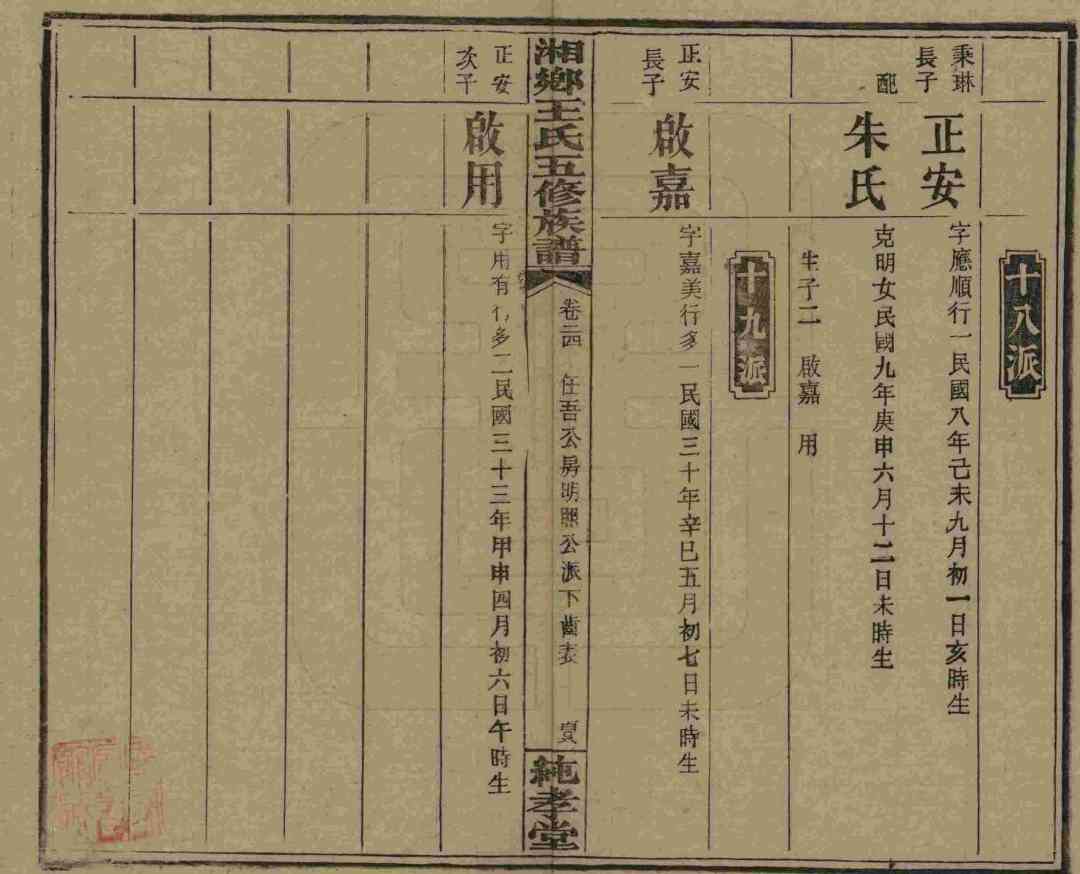 十八派
秉琳長子
正安
字應順行一民國八年己未九月初一日亥時生
配
朱氏
克明女民國九年庚申六月十二日未時生
生子二 啟嘉 用
十九派
正安長子
啟嘉
字嘉美行多一民國三十年辛巳五月初七日未時生
湘鄉王氏五修族譜
卷二四 任吾公房明熙公派下齒表
純孝堂
正安次子
啟用
字用有行多二民國三十三年甲申四月初六日午時生